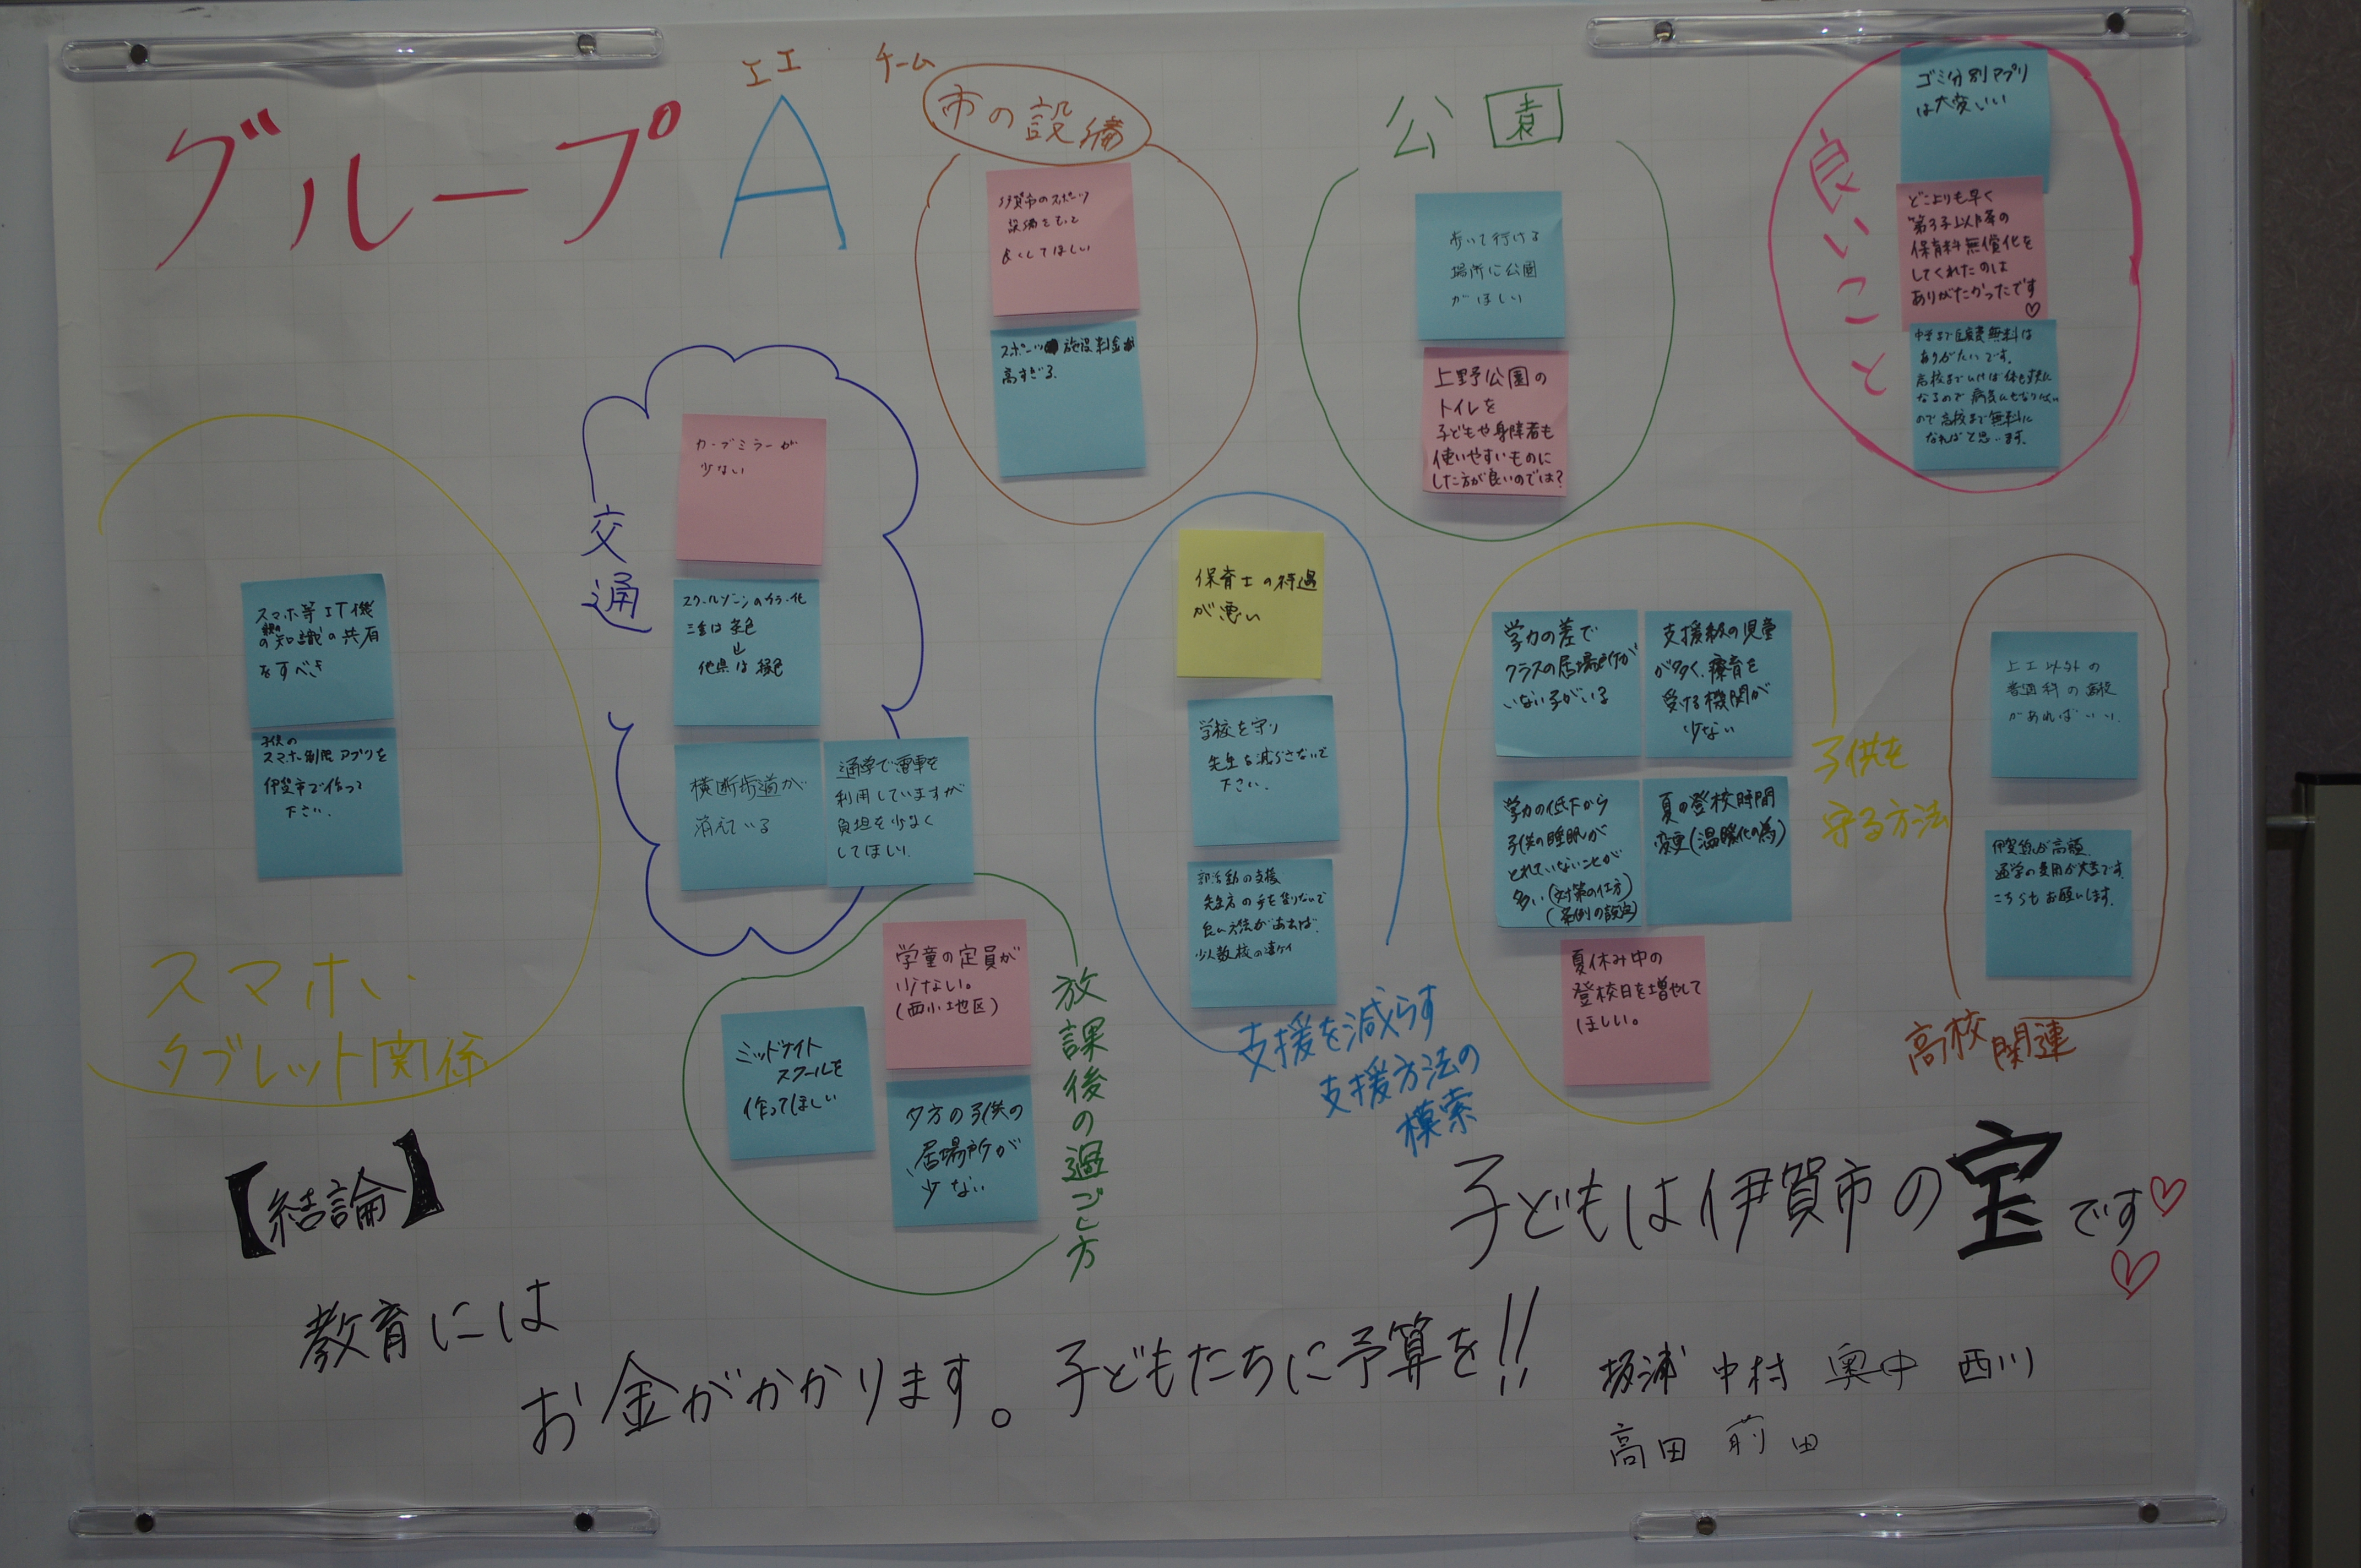 グループ
A
エエ チーム
市の設備
伊賀市のスポーツ
設備をもっと
良くしてほしい
スポーツ施設料金が
高すぎる.
公園
歩いて行ける
場所に公園
がほしい
上野公園の
トイレを
子どもや身障者も
使いやすいものに
した方が良いのでは?
良いこと
ゴミ分別アプリ
は大変いい
どこよりも早く
第3子以降の
保育料無償化を
してくれたのは
ありがたかったです
♡
中学まで医療費無料は
ありがたいです.
高校まで
なるので病気にも
ので高校まで無料に
なればと思います.
スマホ等IT機
の知識の共有
をすべき
子供の
スマホ制限アプリを
伊賀市で作って
下さい.
スマホ、
タブレット関係
交通
カーブミラーが
少ない
スクールゾーンのカラー化
三重は茶色
↓
他県は緑色
横断歩道が
消えている
通学で電車を
利用していますが
負担を少なく
してほしい.
保育士の待遇
が悪い
学校を守り
先生を減らさないで
下さい.
部活動の支援
先生方の手を借りないで
良い方法があれば.
少人数校の
支援を減らす
支援方法の
模索
学力の差で
クラスの居場所が
いない子がいる
支援級の児童
が多く、療育を
受ける機関が
少ない
学力の低下から
子供の睡眠が
とれていないことが
多い(対策の仕方)
(条例の設定)
夏の登校時間
変更(温暖化の為)
夏休み中の
登校日を増やして
ほしい。
子供を
守る方法
上工以外の
普通科の高校
があればいい.
伊賀線が高額.
通学の費用が大変です.
こちらもお願いします.
高校関連
学童の定員が
少ない。
(西小地区)
ミッドナイト
スクールを
作ってほしい
夕方の子供の
居場所が
少ない
放課後の過ごし方
【結論】
子どもは伊賀市の宝です♡
♡
教育には
お金がかかります。子どもたちに予算を!!
坂浦 中村 奥中 西川
高田 前田